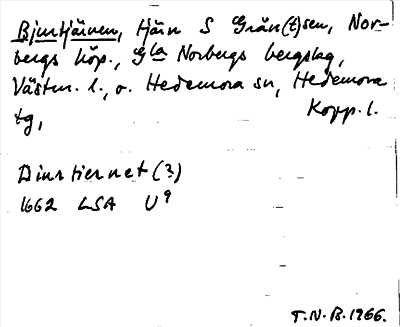 Bjurtjärnen, tjärn S Grän(t)sen, Nor-
bergs köp., Gla Norbergs bergslag,
Västm. l., o. Hedemora sn, Hedemora
tg, Kopp. l.
Diurtiernet (?)
1662 LSA U9
T.N.B. 1966.